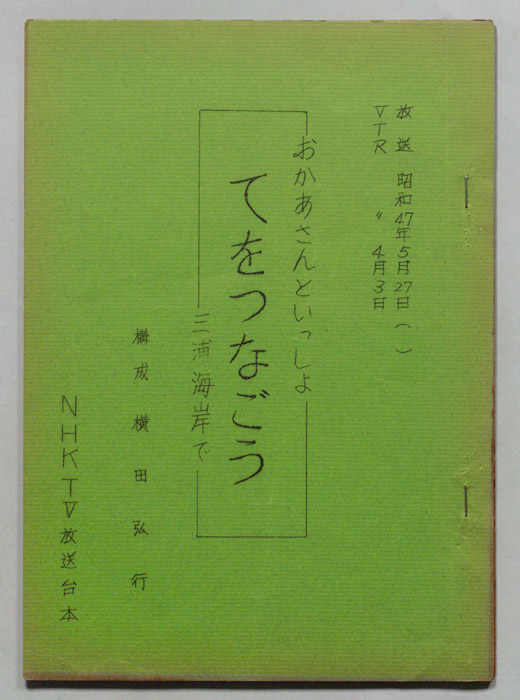 放送 昭和47年5月27日( )
VTR 〃 4月3日
おかあさんといっしょ
てをつなごう
三浦海岸で
構成 横田弘行
NHKTV放送台本